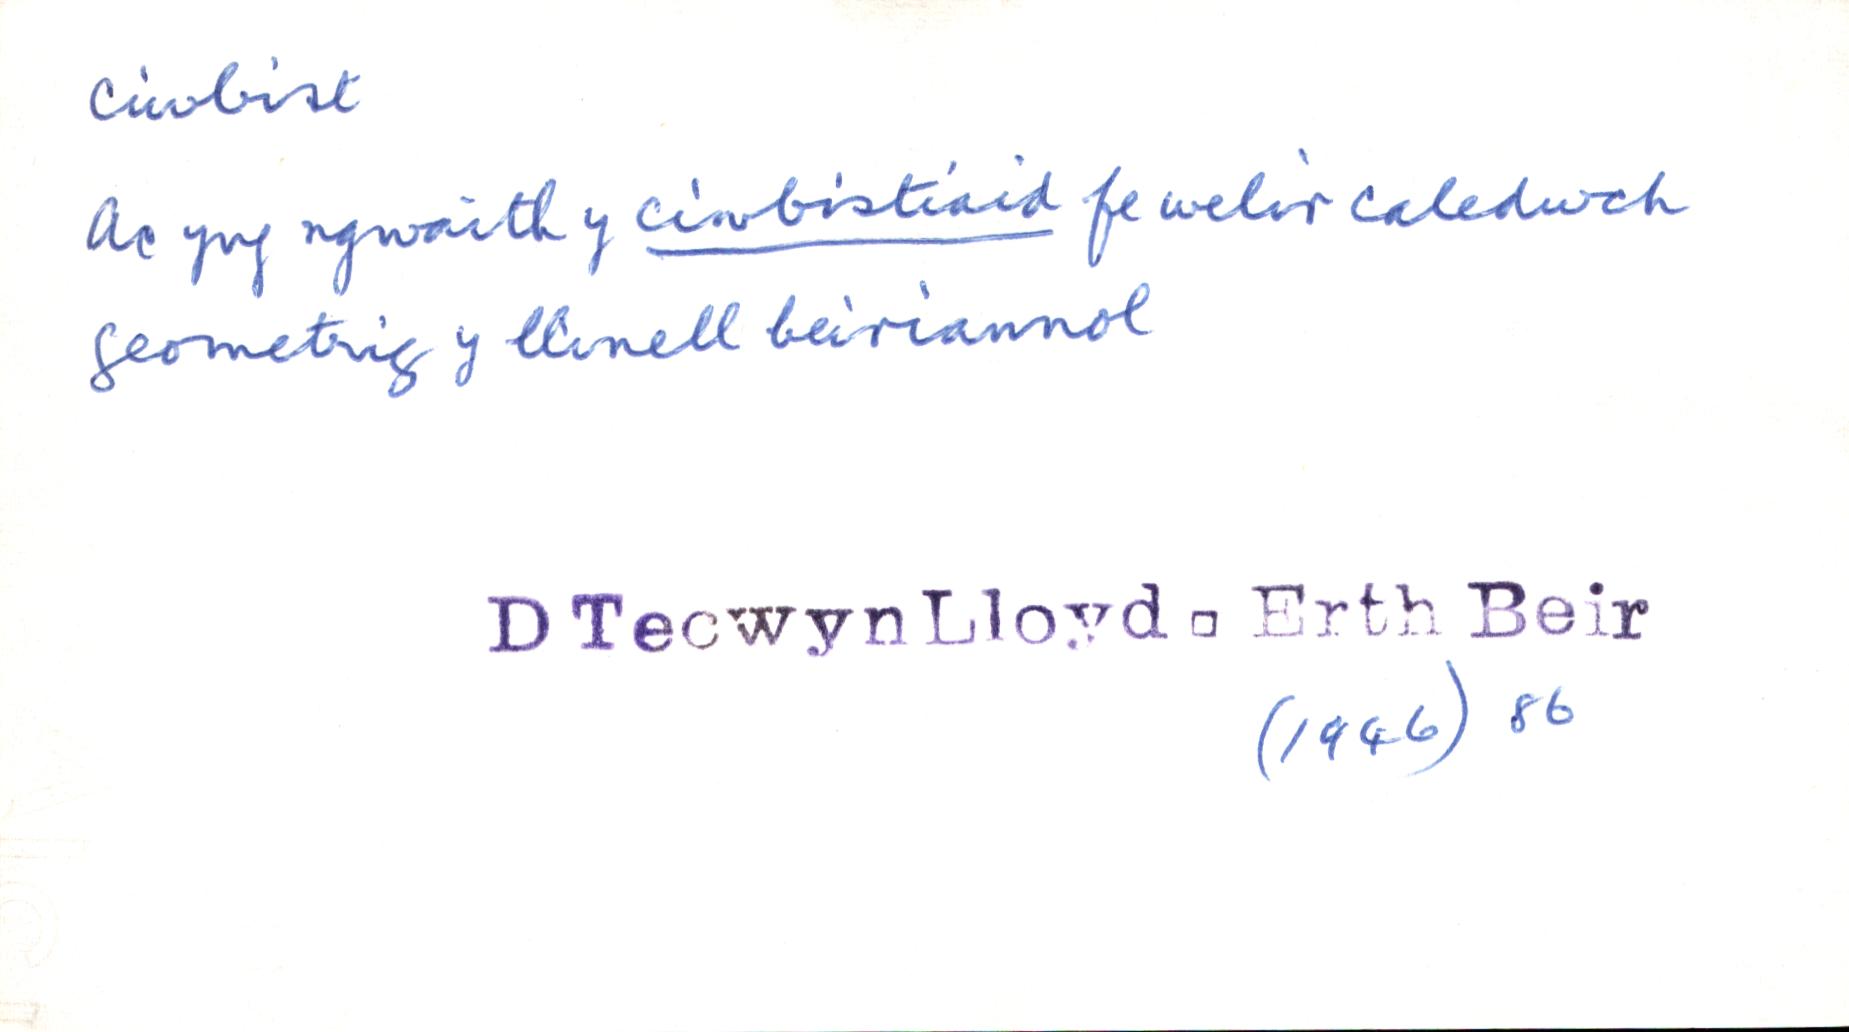 ciwbist
Ac yng ngwaith y ciwbistiaid fe welir caledwch
geometrig y llinell beiriannol
D Tecwyn Lloyd. Erth Beir
(1946) 86